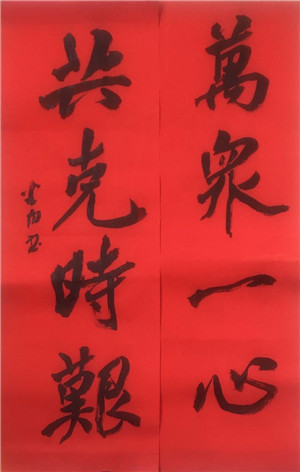 萬衆一心
共克時艱